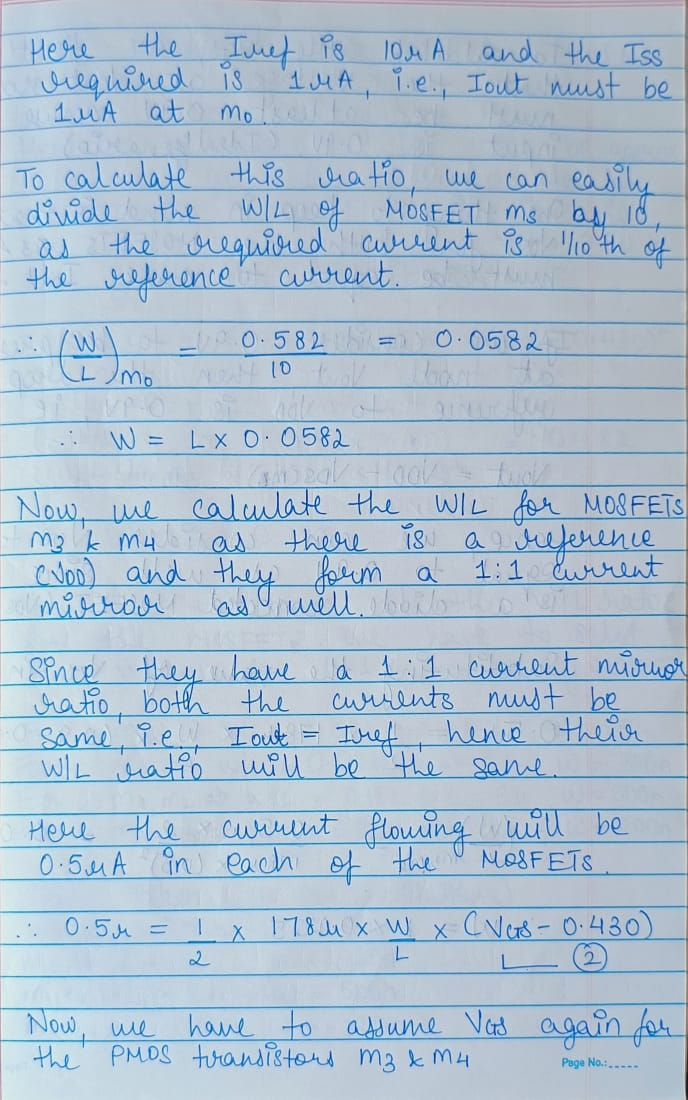 Here the Iref is 10μA and the Iss
required is 1μA, i.e., Iout must be
1μA at mo.
To calculate this ratio, we can easily
divide the W/L of MOSFET m5 by 10,
as the required current is 1/10th of
the reference current.
∴ (W/L)mo = 0.582/10 = 0.0582
∴ W = L x 0.0582
Now, we calculate the W/L for MOSFETs
m3 & m4 as there is a reference
(VDD) and they form a 1:1 current
mirror as well.
Since they have a 1:1 current mirror
ratio, both the currents must be
same, i.e., Iout = Iref, hence their
W/L ratio will be the same.
Here the current flowing will be
0.5μA in each of the MOSFETs.
∴ 0.5μ = 1/2 x 178μ x W/L x (VGS - 0.430)
②
Now, we have to assume VGS again for
the PMOS transistors m3 & m4
Page No.:.....